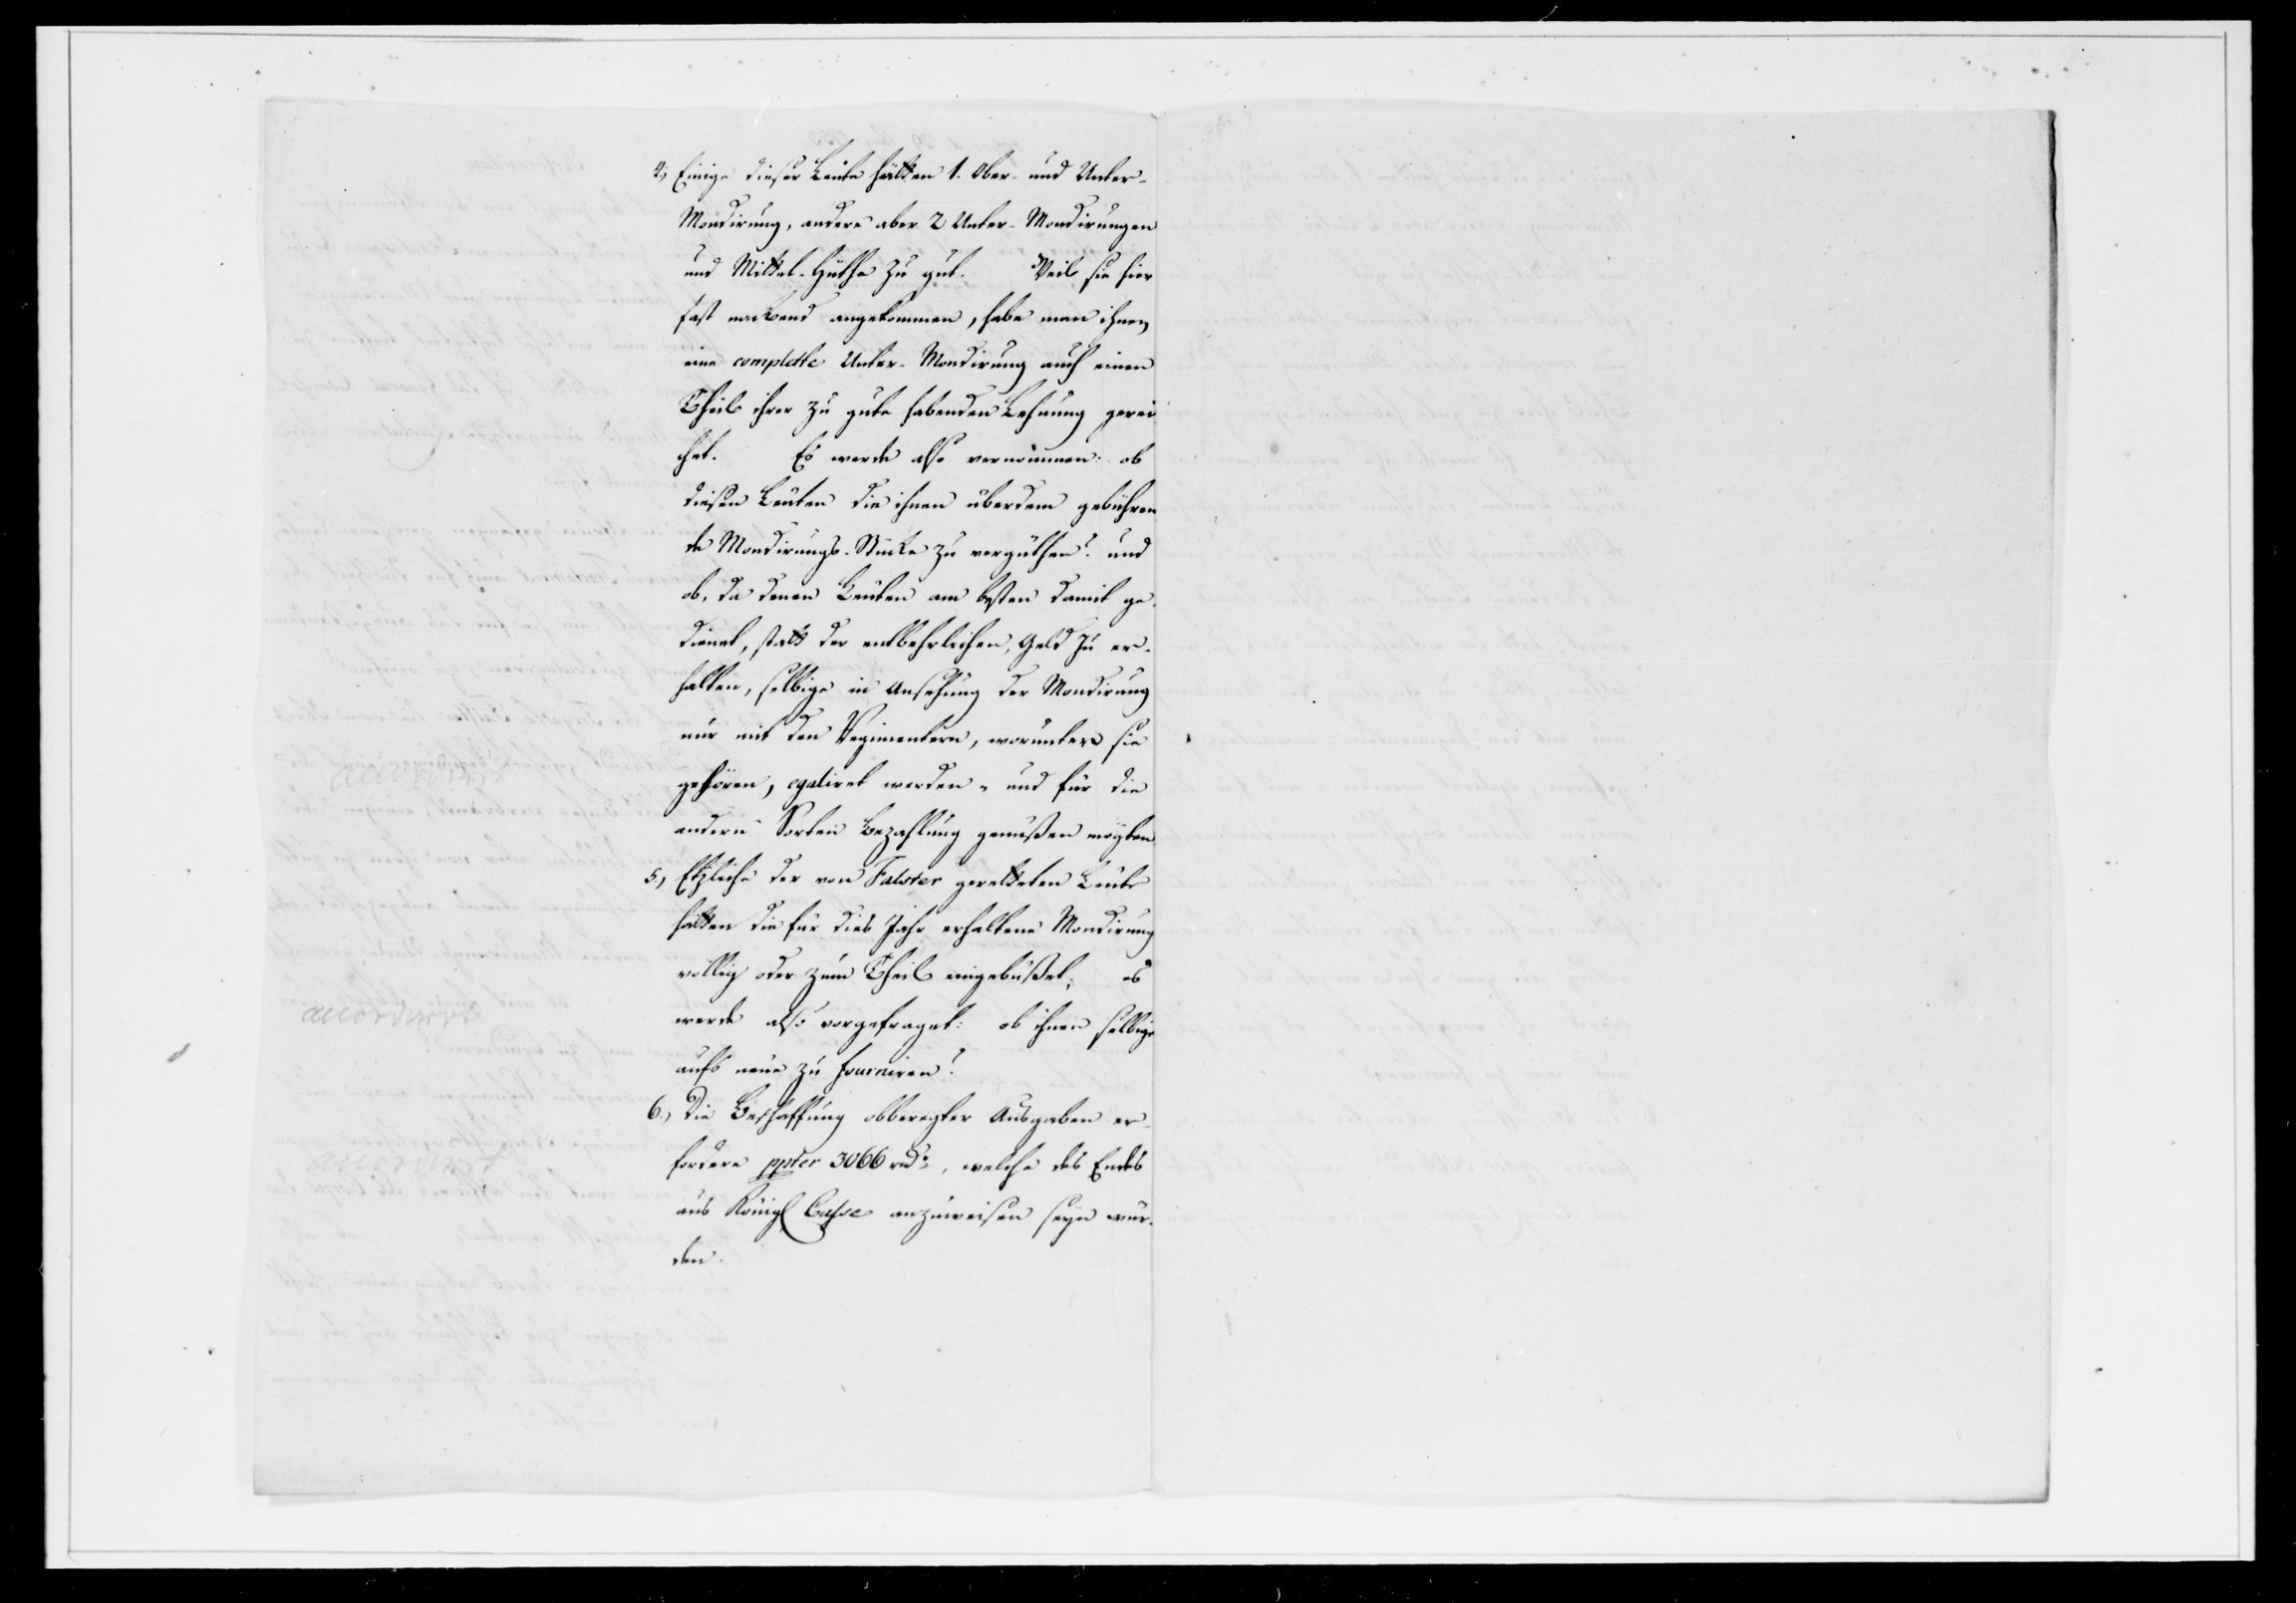 4., Einige dieser Leute hätten 1. Ober- und Unter-
Mondirung, andere aber 2 Unter-Mondirungen
und Mittel-Hüthe zu gut. Weil sie hier
fast nackend angekommen, habe man ihnen
eine complette Unter-Mondirung auch einen
Theil ihrer zu gute habenden Lehnung gerei
chet. Es werde also vernommen: ob
diesen Leuten die ihnen überdem gebühren
de Mondirungs-Stücke zu vergüthen? und
ob, da denen Leuten am besten damit ge-
dienet, statt der entbehrlichen, Geld zu er-
halten, selbige in Ansehung der Mondirung
nur mit den Regimentern, worunter sie
gehören, egaliret werden, und für die
andern Sorten Bezahlung genießen mögten
5., Etzliche der von Falster geretteten Leute
hätten die für dies Jahr erhaltene Mondirung
völlig oder zum Theil eingebüßet; es
werde also vorgefraget: ob ihnen selbige
aufs neue zu fourniren?
6., Die Beschaffung obberegter Ausgaben er-
fordere ppter 3066 rd., welche des Endes
aus Königl Casse anzuweisen seyn wür-
den.
accordirt
accordirt
accordirt